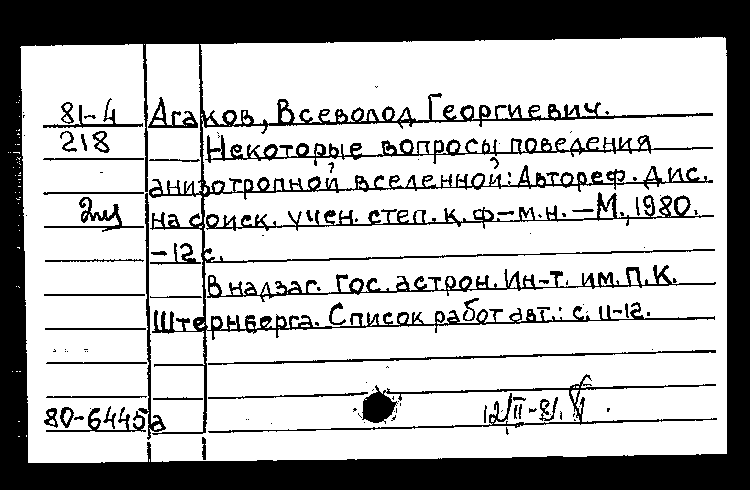 81-4 Агаков, Всеволод Георгиевич.
218 Некоторые вопросы поведения
анизотропной вселенной: Автореф. дис.
на соиск. учен. степ. к. ф-м.н. – М., 1980.
-12 с.
В надзаг. Гос. астрон. Ин-т. им. П.К.
Штернберга. Список работ авт.: с. 11-12.
80-6445а 12/II-81.